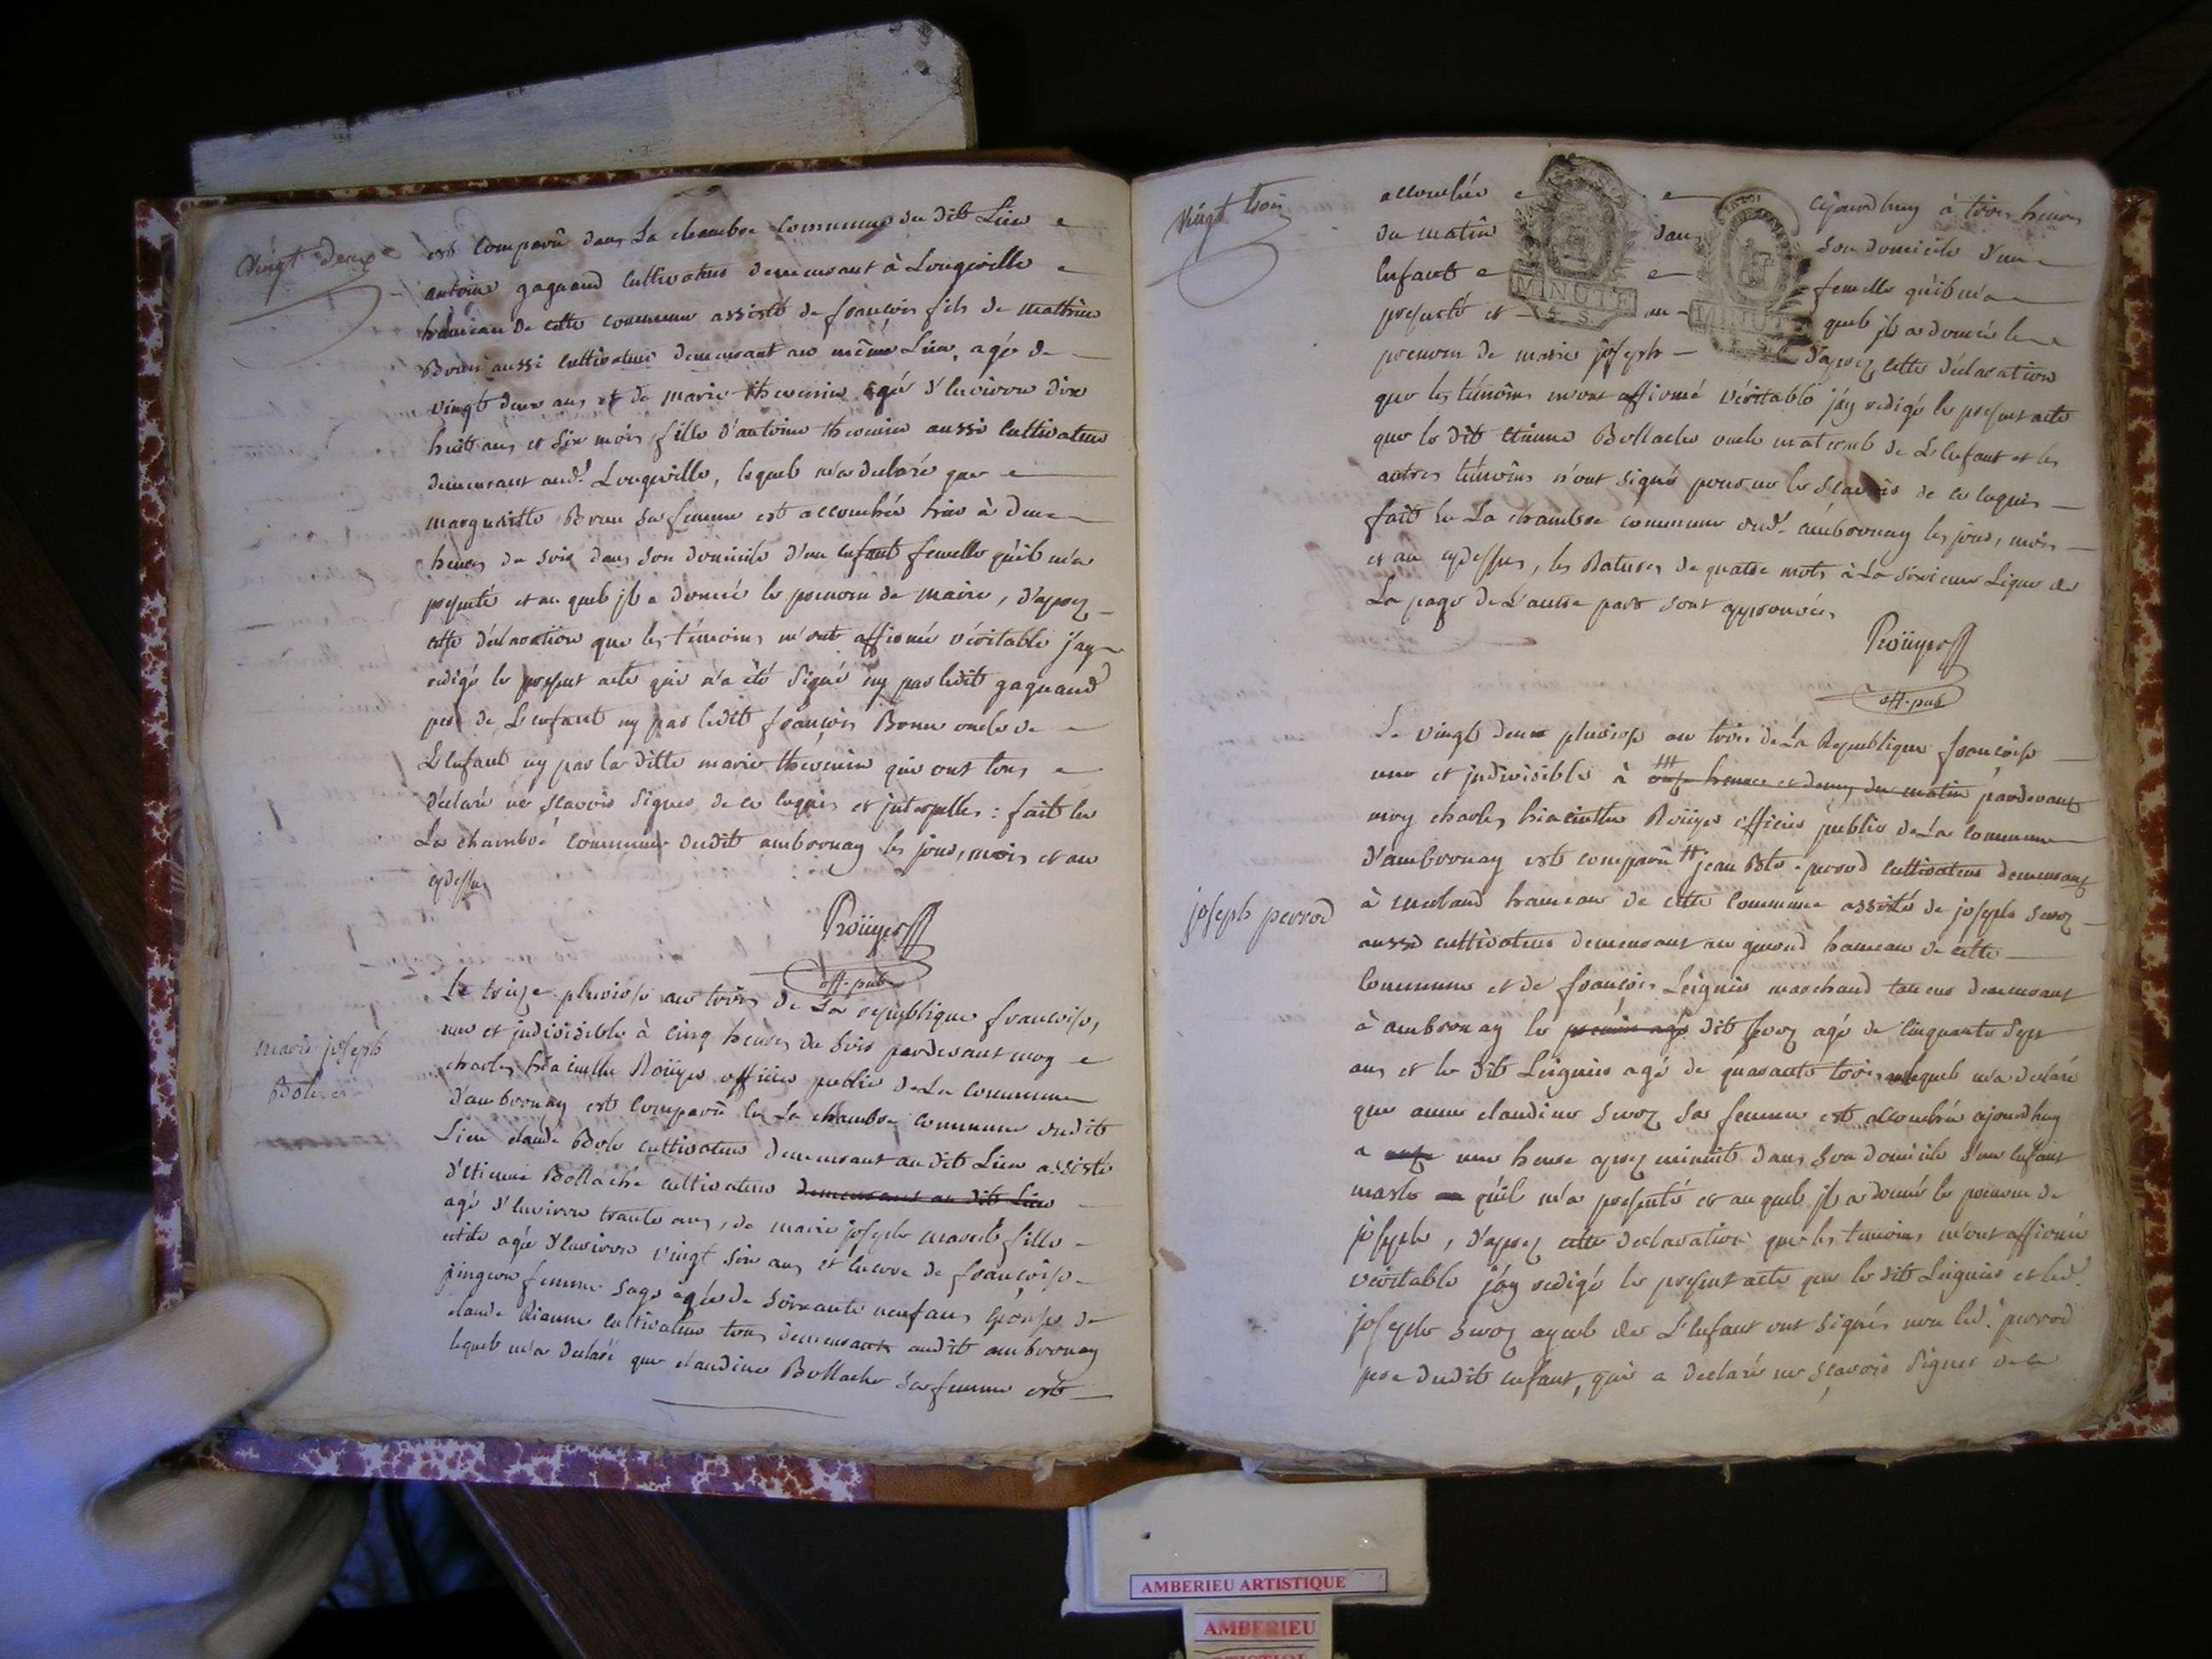 vingt deux
est comparû dans La chambre commune du dit Lieu
antoine gagnand cultivateur demeurant à Longeville
hameau de cette commune assisté de françois fils de mathieu
Brun aussi cultivateur demeurant au même Lieu, agé de
vingt deux ans et de marie thevenin agé d'environ dix
huit ans et six mois fille d'antoine thevenin aussi cultivateur
demeurant aud.t Longeville, lequel m'a declaré que
margueritte Brun sa femme est accouchée hier à deux
heures du soir dans son domicile d'un enfant femelle qu'il m'a
presenté et au quel jl a donné le prenom de marie, d'aprez
cette déclaration que les témoins m'ont affirmé véritable j'ay
redigé le present acte qui n'a été signé ny par ledit gagnand
pere de L'enfant ny par ledit françois Brun oncle de
L'enfant ny par la ditte marie thevenin qui ont tous
déclaré ne scavoir signer de ce enquis et jnterpellés : fait en
La chambre commune dudit ambronay les jour, mois et an
cydessus
Roüyer
off. pub
marie joseph
Bole
Le treize pluviose an trois de La republique françoise,
une et jndivisible à cinq heures du soir pardevant moy
charles hiacinthe Roüyer officier public de La commune
d'ambronay est comparû en La chambre commune dudit
Lieu claude Bole cultivateur demeurant au dit Lieu assisté
d'etienne Bollache cultivateur demeurant au dit Lieu
agé d'environ trante ans, de marie joseph fille
agée d'environ vingt six ans et encore de françoise
pingeon femme sage agée de soixante neuf ans épouse de
claude Rianne cultivateur tous demeurants audit ambronay
lequel m'a declaré que claudine Bollache sa femme est
vingt trois
accouchée cejourd'huy à trois heures
du matin dans son domicile d'un
enfant femelle qu'il m'a
presenté et au quel jl a donné le
prenom de marie joseph d'aprez cette déclaration
que les témoins m'ont affirmé véritable j'ay redigé le present acte
que le dit etienne Bollache oncle maternel de L'enfant et les
autres témoins n'ont signé pour ne le scavoir de ce enquis
fait en La chambre commune aud.t ambronay les jour, mois
et an cydessus, les Ratures de quatre mots à La sixieme Ligne de
La page de L'autre part sont approuvées
Roüyer
off. pub
joseph perrod
Le vingt deux pluviose an trois de La Republique françoise
une et jndivisible à onze heures et demy du matin pardevant
moy charles hiacinthe Roüyer officier public de La commune
d'ambronay est comparû jean Bte. perrod cultivateur demeurant
à merland hameau de cette commune assisté de joseph Savoz
aussi cultivateur demeurant au genoud hameau de cette
commune et de françois Leignier marchand taneur demeurant
à ambronay le premier agé dit Savoz agé de Cinquante Sept
ans et le dit Leignier agé de quarante trois lequel m'a declaré
que anne claudine Savoz sa femme est accouchée cejourd'huy
a onze une heure aprez minuit dans son domicile d'un enfant
masle qu'il m'a presenté et au quel jl a donné le prenom de
joseph, d'aprez cette declaration que les temoins m'ont affirmée
véritable j'ay redigé le present acte que le dit Leignier et led.t
joseph Savoz ayeul de L'enfant ont signés non led.t perrod
pere dudit enfant, qui a declaré ne scavoir signer de ce
MINUTE
MINUTE
AMBERIEU ARTISTIQUE
AMBERIEU